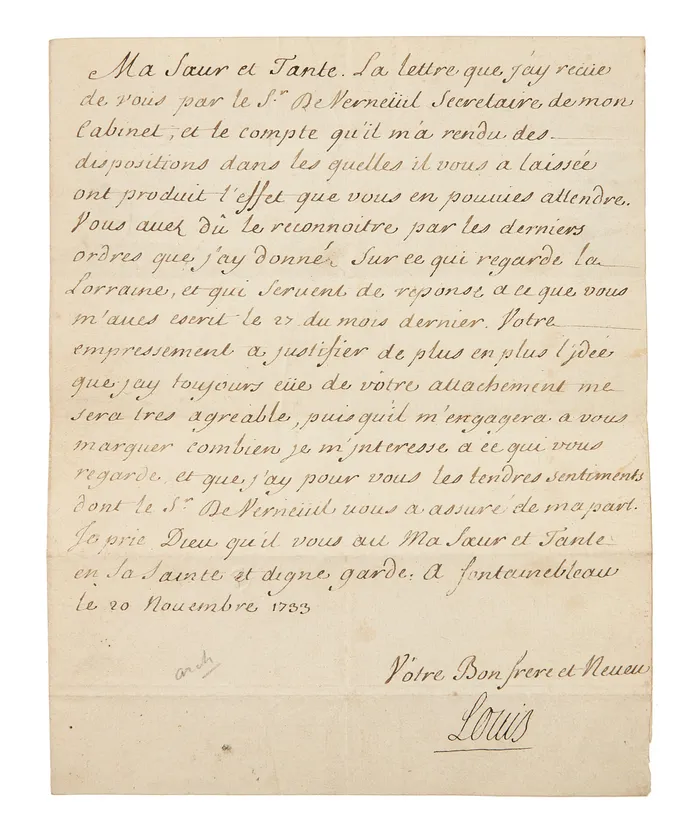 Ma Sœur et Tante. La lettre que j'ay recüe
de vous par le S.r De Verneüil Secretaire de mon
Cabinet, et le compte qu'il m'a rendu des
dispositions dans les quelles il vous a laissée
ont produit l'effet que vous en pouviés attendre.
Vous avez dû le reconnoitre par les derniers
ordres que j'ay donné sur ce qui regarde la
Lorraine, et qui servent de reponse a ce que vous
m'avés escrit le 27 du mois dernier. Votre
empressement a justifier de plus en plus l'jdée
que jay toujours eüe de vôtre attachement me
sera tres agreable, puisqu'il m'engagera a vous
marquer combien je m'jnteresse a ce qui vous
regarde et que j'ay pour vous les tendres sentiments
dont le S.r De Verneüil vous a assuré de ma part.
Je prie Dieu qu'il vous ait Ma Sœur et Tante
en sa sainte et digne garde. A fontainebleau
le 20 Novembre 1733
Vôtre Bon frere et Neveu
Louis